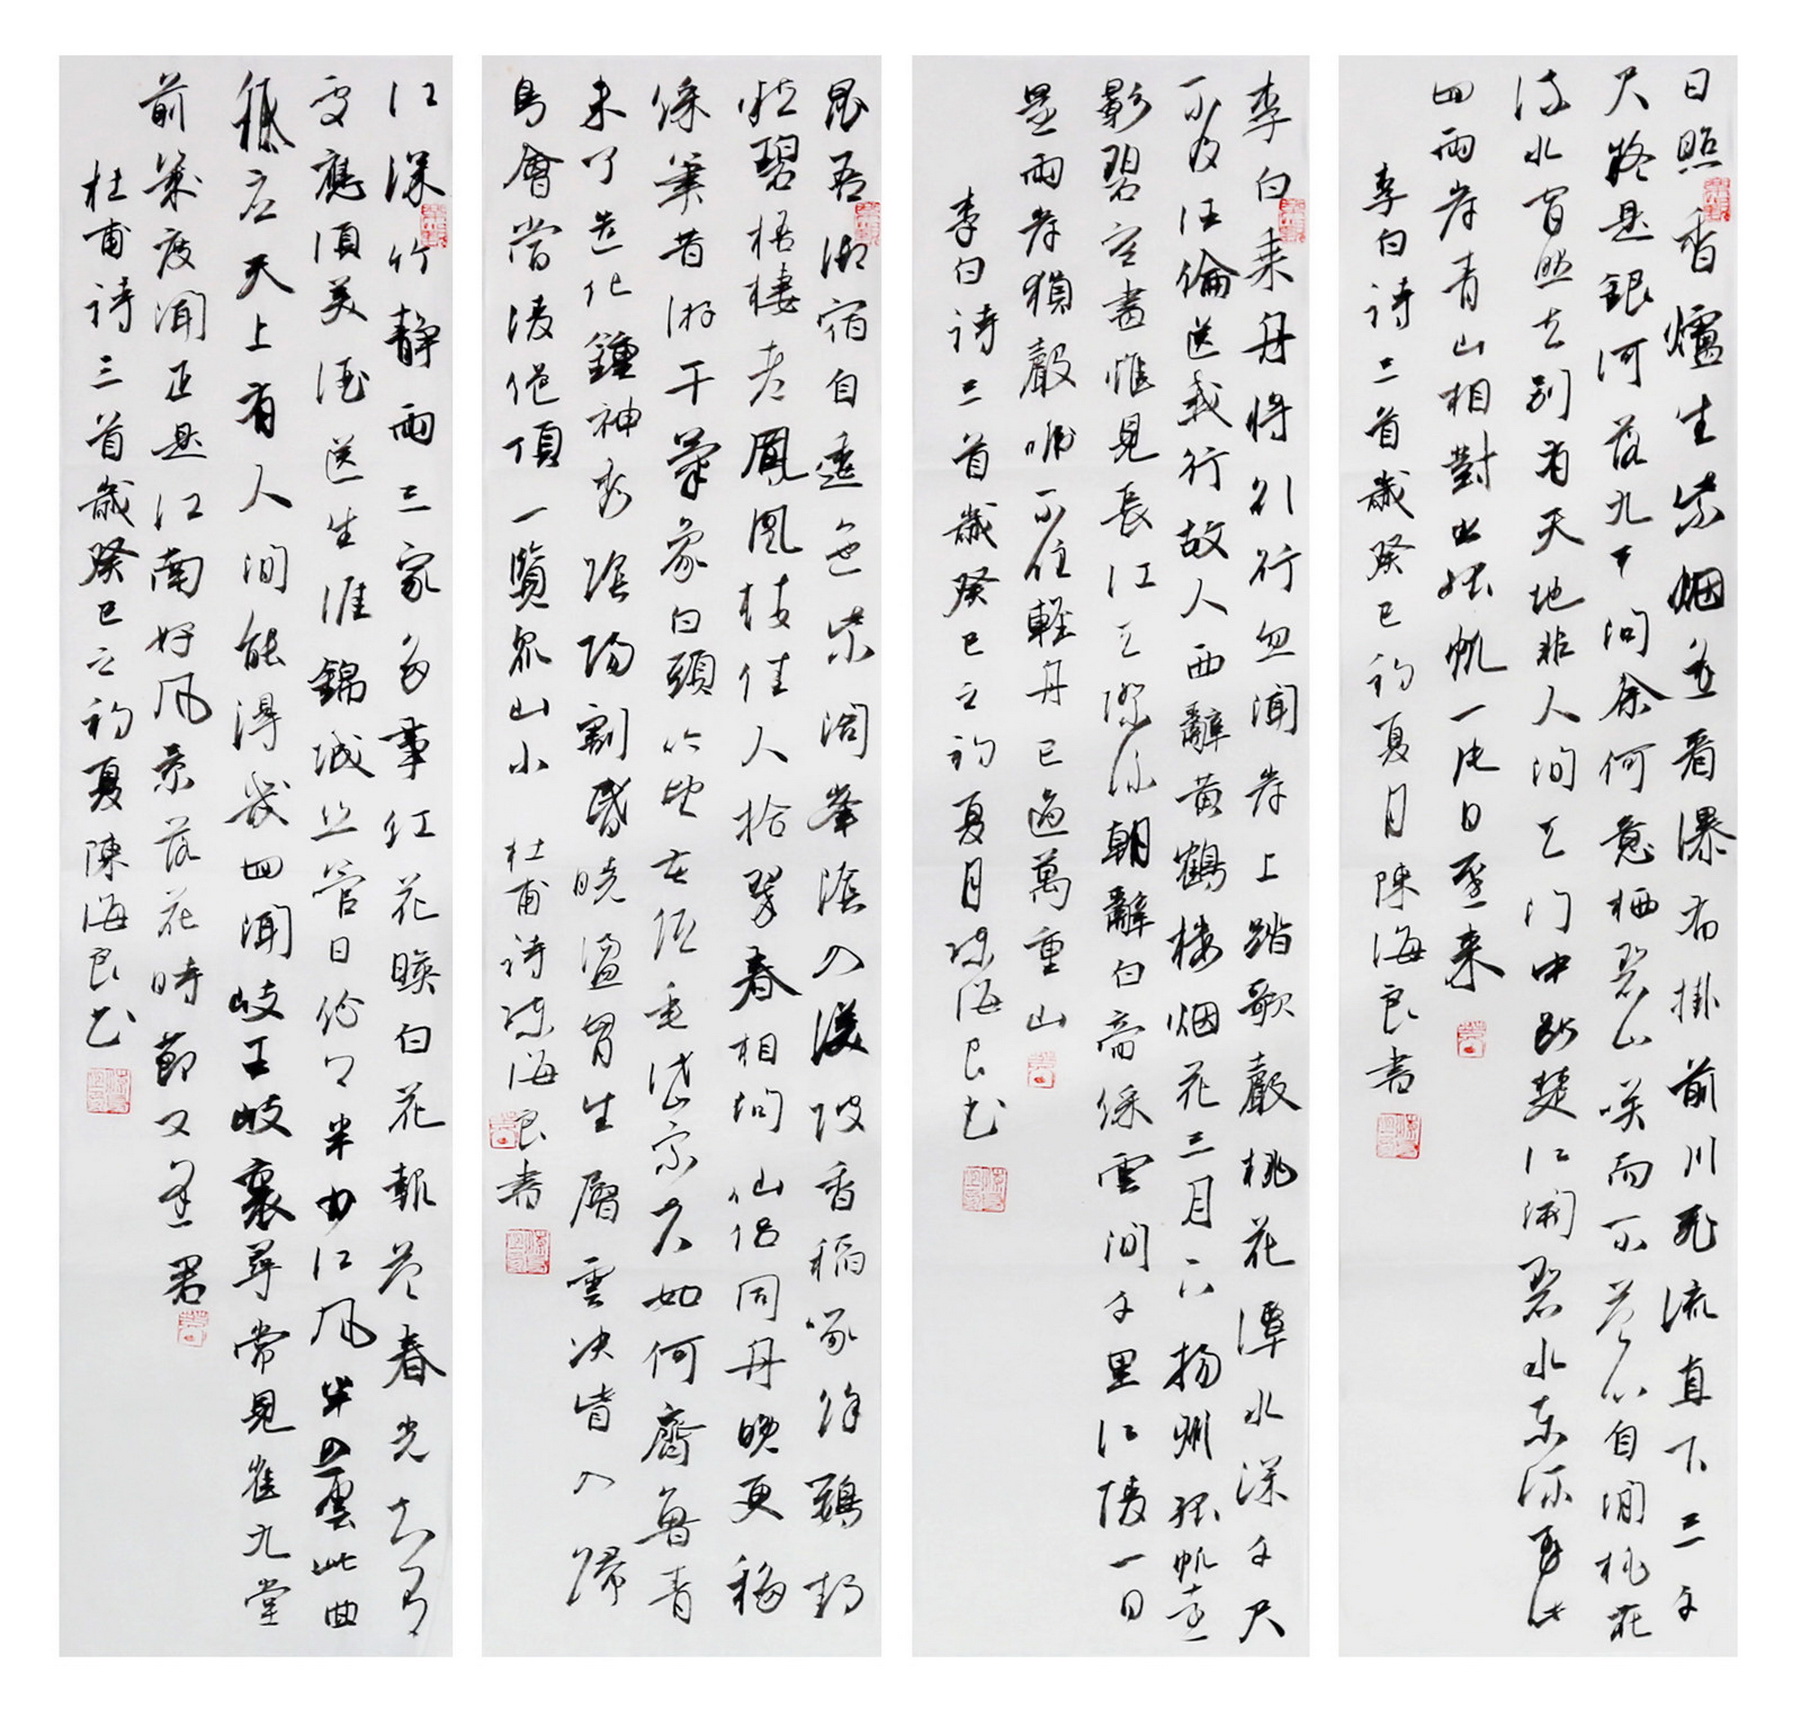 日照香爐生紫烟遙看瀑布掛前川飛流直下三千
尺疑是銀河落九天問余何意栖碧山笑而不答心自閒桃花
流水窅然去別有天地非人間天門中斷楚江開碧水東流至此
回兩岸青山相對出孤帆一片日邊來
李白詩三首歲癸巳初夏月陳海良書
李白乘舟將欲行忽聞岸上踏歌聲桃花潭水深千尺
不及汪倫送我行故人西辭黃鶴樓烟花三月下揚州孤帆遠
影碧空盡惟見長江天際流朝辭白帝綵雲間千里江陵一日
還兩岸猿聲啼不住輕舟已過萬重山
李白詩三首歲癸巳之初夏月陳海良書
昆吾御宿自逶迤紫閣峯陰入渼陂香稻啄餘鸚鵡
粒碧梧棲老鳳凰枝佳人拾翠春相問仙侶同舟晚更移
綵筆昔游干氣象白頭吟望苦低垂岱宗夫如何齊魯青
未了造化鍾神秀陰陽割昏曉盪胷生層雲決眥入歸
鳥會當凌絕頂一覽眾山小
杜甫詩陳海良書
江深竹靜兩三家多事紅花映白花報答春光知有
處應須美酒送生涯錦城絲管日紛紛半入江風半入雲此曲
祇應天上有人間能得幾回聞岐王岐裏尋常見崔九堂
前幾度聞正是江南好風景落花時節又逢君
杜甫詩三首歲癸巳之初夏陳海良書